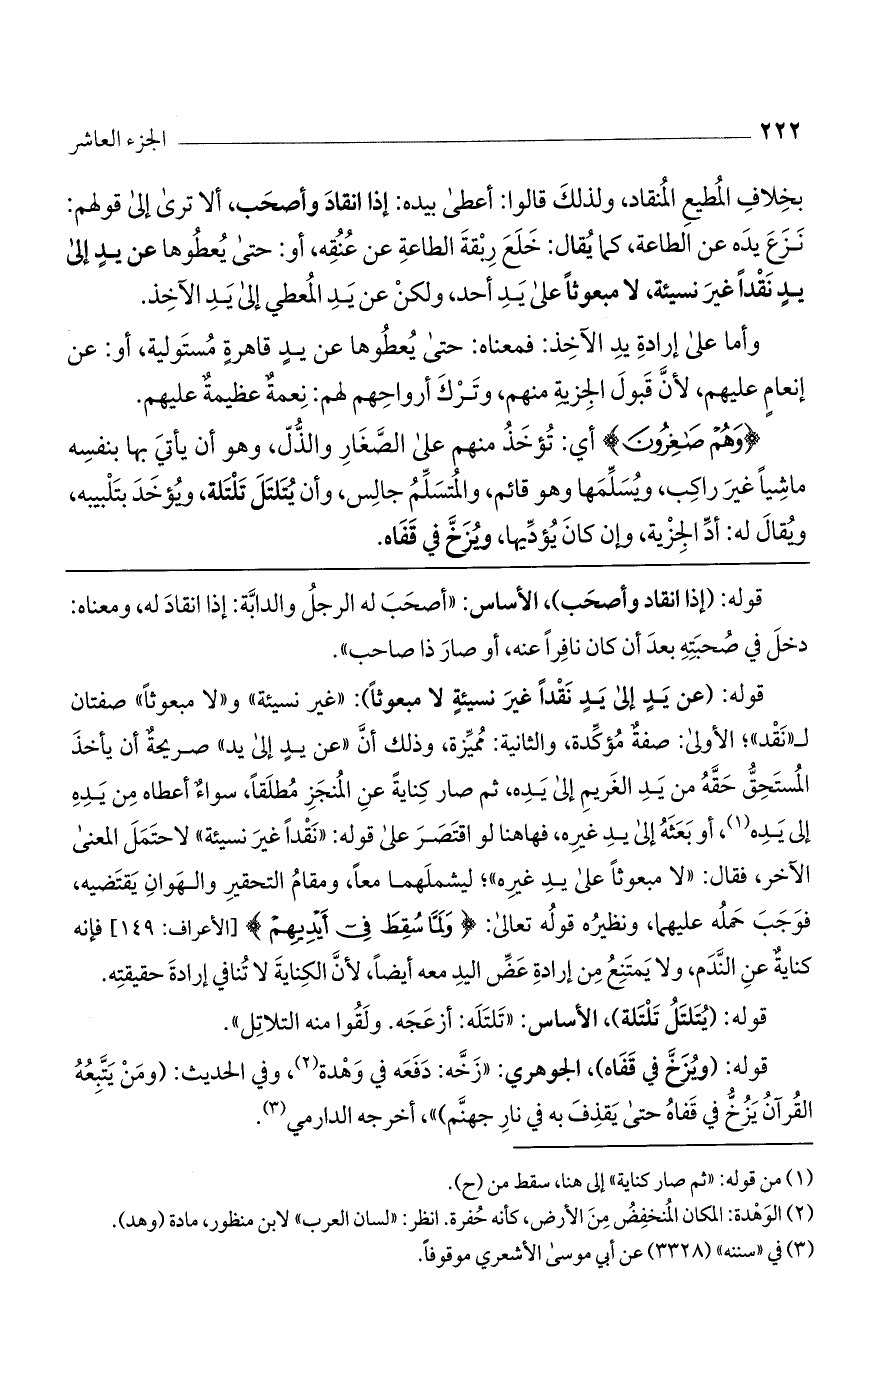 ٢٢٢ الجزء العاشر
بخِلافِ المُطيعِ المُنقاد، ولذلكَ قالوا: أعطىٰ بيده: إذا انقادَ وأصحَب، ألا ترىٰ إلىٰ قولهم:
نَزَعَ يدَه عن الطاعة، كما يُقال: خَلَعَ رِبْقةَ الطاعةِ عن عُنُقِه، أو: حتىٰ يُعطُوها عن يدٍ إلىٰ
يدٍ نَقْداً غيرَ نسيئة، لا مبعوثاً علىٰ يَدِ أحد، ولكنْ عن يَدِ المُعطي إلىٰ يَدِ الآخِذ.
وأما علىٰ إرادةِ يدِ الآخِذ: فمعناه: حتىٰ يُعطُوها عن يدٍ قاهرةٍ مُستَولية، أو: عن
إنعامٍ عليهم، لأنَّ قَبولَ الجِزيةِ منهم، وتَرْكَ أرواحِهم لهم: نِعمةٌ عظيمةٌ عليهم.
﴿وَهُمْ صَٰغِرُونَ﴾ أي: تُؤخَذُ منهم علىٰ الصَّغَارِ والذُّلّ، وهو أن يأتيَ بها بنفسِه
ماشِياً غيرَ راكِب، ويُسَلِّمَها وهو قائم، والمُتسَلِّمُ جالِس، وأن يُتَلتَلَ تَلْتَلة، ويُؤخَذَ بتَلْبيبِه،
ويُقالَ له: أدِّ الجِزْية، وإن كانَ يُؤدِّيها، ويُزَخَّ في قَفَاه.
قوله: (إذا انقاد وأصحَب)، الأساس: «أصحَبَ له الرجلُ والدابَّة: إذا انقادَ له، ومعناه:
دخلَ في صُحبَتِهِ بعدَ أن كان نافِراً عنه، أو صارَ ذا صاحب».
قوله: (عن يَدٍ إلىٰ يَدٍ نَقْداً غيرَ نسيئةٍ لا مبعوثاً): «غير نسيئة» و«لا مبعوثاً» صفتان
لـ«نَقْد»؛ الأولىٰ: صفةٌ مُؤكِّدة، والثانية: مُميِّزة، وذلك أنَّ «عن يدٍ إلىٰ يد» صريحةٌ أن يأخذَ
المُستَحِقُّ حَقَّهُ من يَدِ الغَريمِ إلىٰ يَدِه، ثم صار كِنايةً عنِ المُنجَزِ مُطلَقاً، سواءٌ أعطاه مِن يَدِهِ
إلى يَدِه(١)، أو بَعَثَهُ إلىٰ يدِ غيرِه، فهاهنا لو اقتَصَرَ علىٰ قوله: «نَقْداً غيرَ نسيئة» لاحتَمَلَ المعنىٰ
الآخر، فقال: «لا مبعوثاً علىٰ يدِ غيرِه»؛ ليشملَهما معاً، ومقامُ التحقيرِ والهَوانِ يَقتَضيه،
فوَجَبَ حَملُه عليهما، ونظيرُه قولُه تعالىٰ: ﴿ وَلَمَّا سُقِطَ فِىٓ أَيْدِيهِمْ ﴾ [الأعراف: ١٤٩] فإنه
كنايةٌ عنِ النَّدَم، ولا يَمتَنِعُ مِن إرادةِ عَضِّ اليدِ معه أيضاً، لأنَّ الكِنايةَ لا تُنافي إرادةَ حقيقتِه.
قوله: (يُتَلتَلُ تَلْتَلة)، الأساس: «تَلتَلَه: أزعَجَه. ولَقُوا منه التلاتِل».
قوله: (ويُزَخَّ في قَفَاه)، الجوهري: «زَخَّه: دَفَعَه في وَهْدة(٢)، وفي الحديث: (ومَنْ يَتَّبِعُهُ
القُرآنُ يَزُخُّ في قَفاهُ حتىٰ يَقذِفَ به في نارِ جهنَّم)»، أخرجه الدارمي(٣).
(١) من قوله: «ثم صار كناية» إلى هنا، سقط من (ح).
(٢) الوَهْدة: المكان المُنخفِضُ مِنَ الأرض، كأنه حُفرة. انظر: «لسان العرب» لابن منظور، مادة (وهد).
(٣) في «سننه» (٣٣٢٨) عن أبي موسىٰ الأشعري موقوفاً.